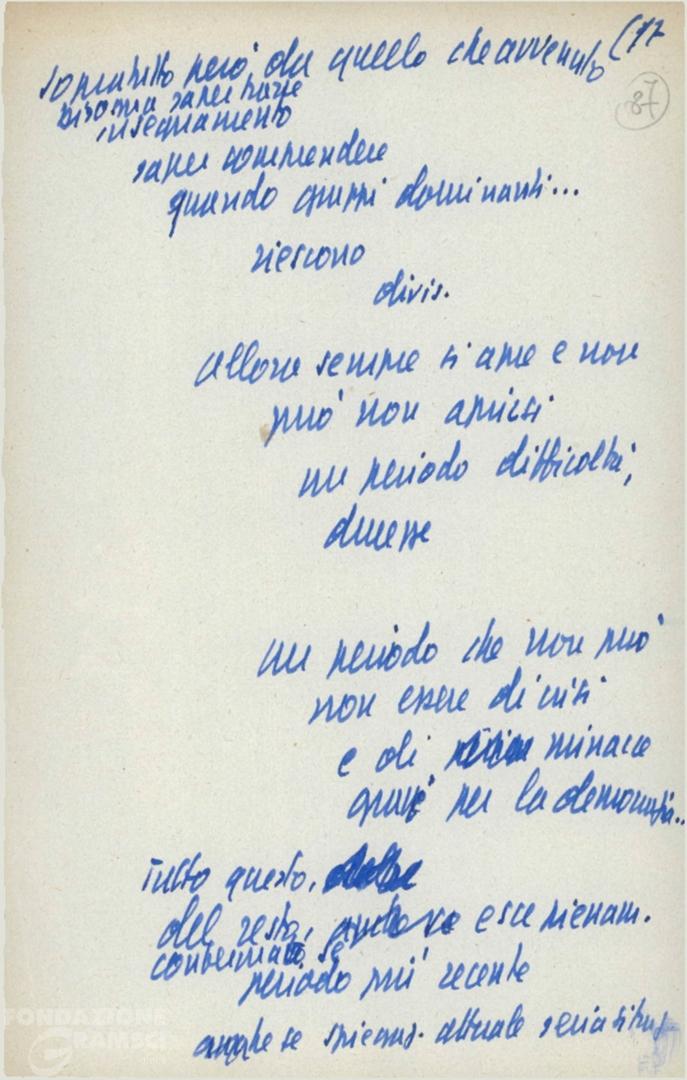 (17
87
sopratutto però da quello che avvenuto
bisogna saper trarre
insegnamento
saper comprendere
quando gruppi dominanti...
riescono
divis.
allora sempre si apre e non
può non aprirsi
un periodo difficoltà,
un periodo che non può
non essere di crisi
e di minacce
gravi per la democrazia..
Tutto questo,
del resto, esce pienam.
confermato se
periodo più recente
anche se attuale seria situaz
FONDAZIONE
GRAMSCI